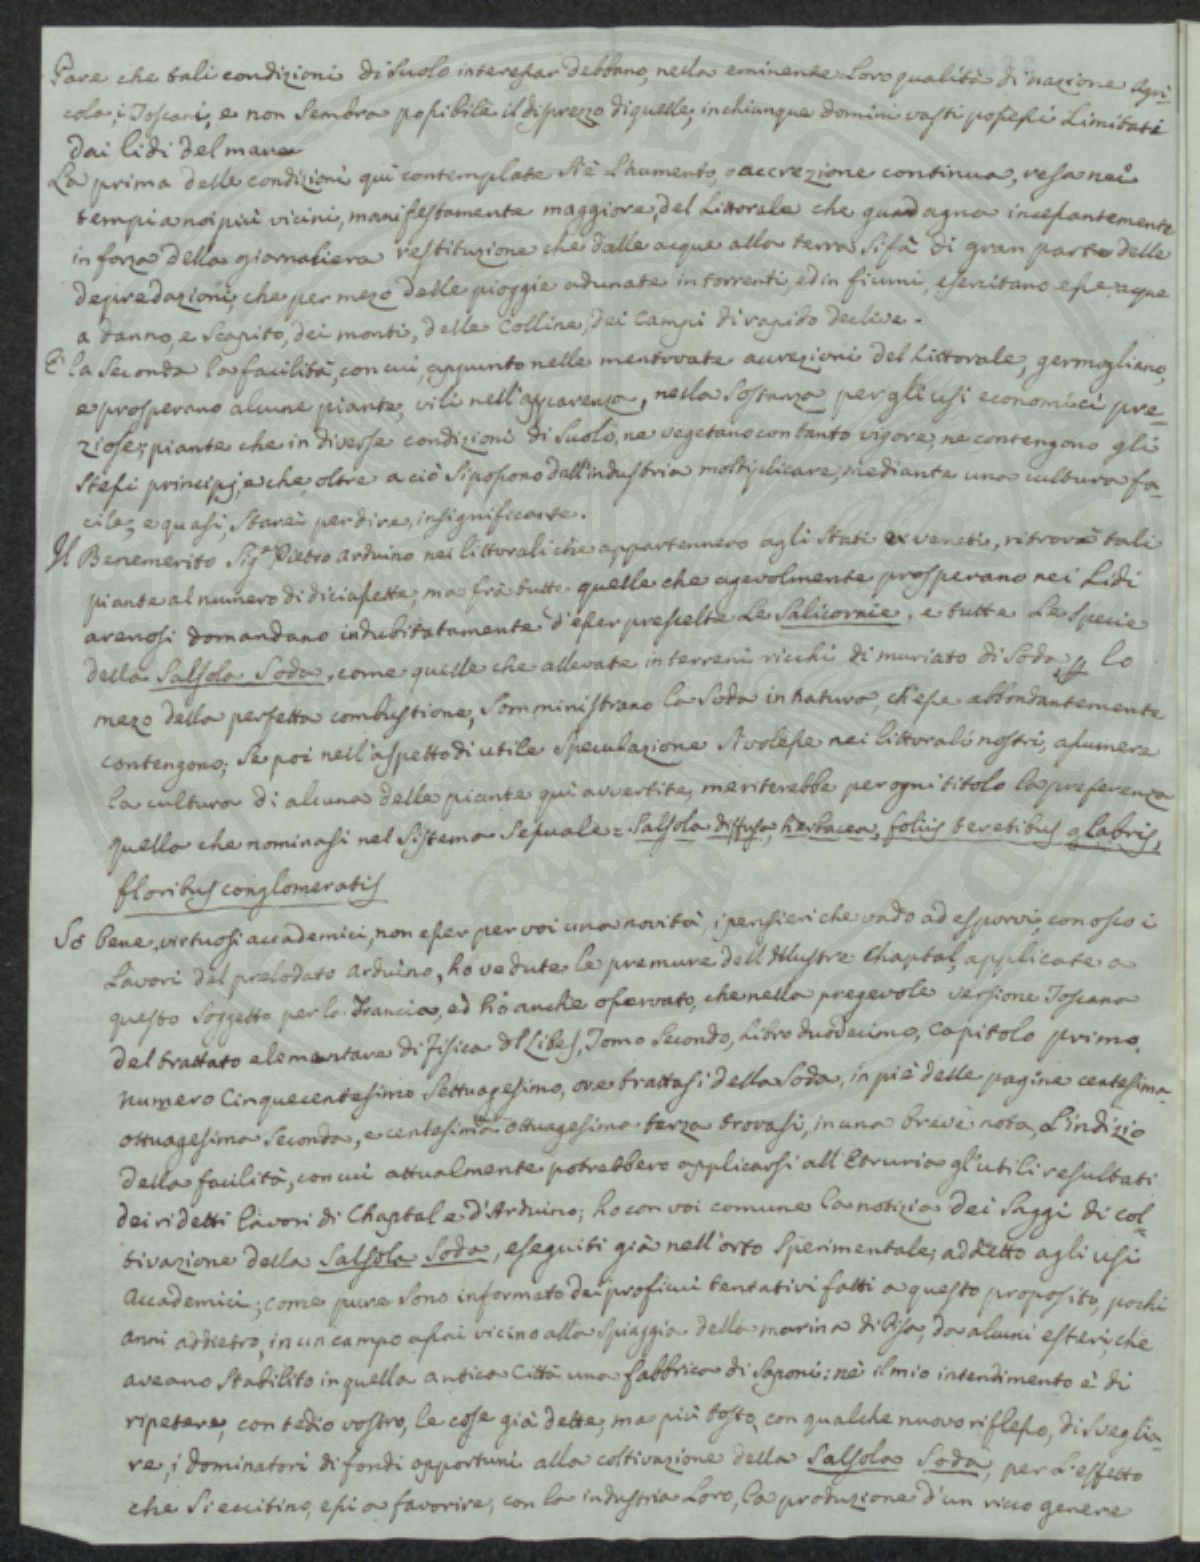 Pare che tali condizioni di suolo interessar debbano, nella eminente Loro qualità di nazione Agri-
cola, i Toscani, e non sembra possibile il disprezzo di quelle, in chiunque domini vasti possessi Limitati
dai lidi del mare
La prima delle condizioni quì contemplate si è l'aumento, o accrezione continua, resa nei
tempi a noi più vicini, manifestamente maggiore, del Littorale che guadagna incessantemente
in forza della giornaliera restituzione che dalle acque alla terra si fà di gran parte delle
depredazioni, che per mezo delle pioggie adunate in torrenti, ed in fiumi, esercitano esse acque
a danno, e scapito, dei monti, delle Colline, dei Campi di rapido declive.
E' la seconda la facilità, con cui, appunto nelle mentovate accrezioni del Littorale, germogliano,
e prosperano alcune piante, vili nell'apparenza, nella sostanza per gli usi economici pre-
ziose; piante che in diverse condizioni di suolo, ne vegetano con tanto vigore, ne contengono gli
stessi principj, e che, oltre a ciò si possono dall'industria moltiplicare, mediante una cultura fa-
cile, e quasi, starei per dire, insignificante.
Il Benemerito Sig.r Pietro Arduino nei littorali che appartennero agli Stati ex veneti, ritrovò tali
piante al numero di diciassette, ma frà tutte quelle che agevolmente prosperano nei Lidi
arenosi domandano indubitatamente d'esser prescelte Le Salicornie, e tutte Le specie
della Salsola Soda, come quelle che allevate in terreni ricchi di muriato di Soda, p lo
mezo della perfetta combustione, somministrano la Soda in natura, ch'esse abbondantemente
contengono; se poi nell'aspetto di utile speculazione si volesse nei littorali nostri, assumere
la cultura di alcuna delle piante quì avvertite, meriterebbe per ogni titolo la preferenza
quella che nominasi nel Sistema Sessuale = Salsola diffusa, herbacea, foliis teretibus glabris,
floribus conglomeratis
Sò bene, virtuosi accademici, non esser per voi una novità, i pensieri che vado ad esporvi, conosco i
Lavori del prelodato Arduino, hò vedute le premure dell'Illustre Chaptal, applicate a
questo soggetto per la Francia, ed hò anche osservato, che nella pregevole versione Toscana
del trattato elementare di Fisica di Libes, Tomo Secondo, Libro duodecimo, Capitolo primo,
numero Cinquecentesimo Settuagesimo, ove trattasi della Soda, in piè delle pagine centesima
ottuagesima seconda, e centesima ottuagesima terza trovasi, in una breve nota, L'indizio
della facilità, con cui attualmente potrebbero applicarsi all'Etruria gl'utili resultati
dei ridetti lavori di Chaptal e d'Arduino; ho con voi comune la notizia dei Saggi di col-
tivazione della Salsola Soda, eseguiti già nell'orto Sperimentale, addetto agli usi
Accademici; come pure sono informato dei proficui tentativi fatti a questo proposito, pochi
anni addietro, in un campo assai vicino alla spiaggia della marina di Pisa, da alcuni esteri, che
aveano stabilito in quella antica Città una fabbrica di Saponi: nè il mio intendimento è di
ripetere, con tedio vostro, le cose già dette, ma più tosto, con qualche nuovo riflesso, di sveglia-
re, i dominatori di fondi opportuni alla coltivazione della Salsola Soda, per L'effetto
che si eccitino, essi a favorire, con la industria Loro, la produzione d'un ricco genere